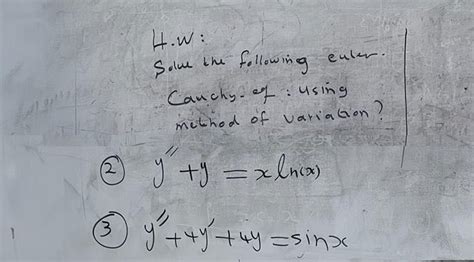 H.W:
Solve the following euler.
Cauchy-eq: using
method of variation?
② y'' + y = x ln(x)
③ y'' + 4y' + 4y = sinx